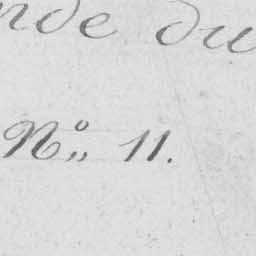 nde du
N.º 11.